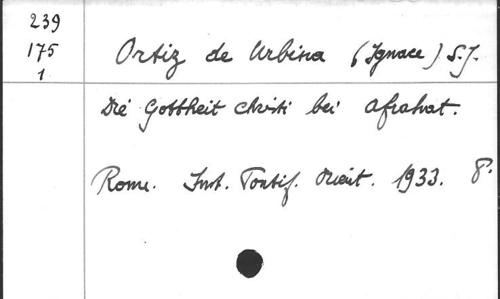 239
175
1
Ortiz de Urbina (Ignace) S.J.
Die Gottheit Christi bei Afrahat.
Rome. Inst. Pontif. Orient. 1933. 8°.